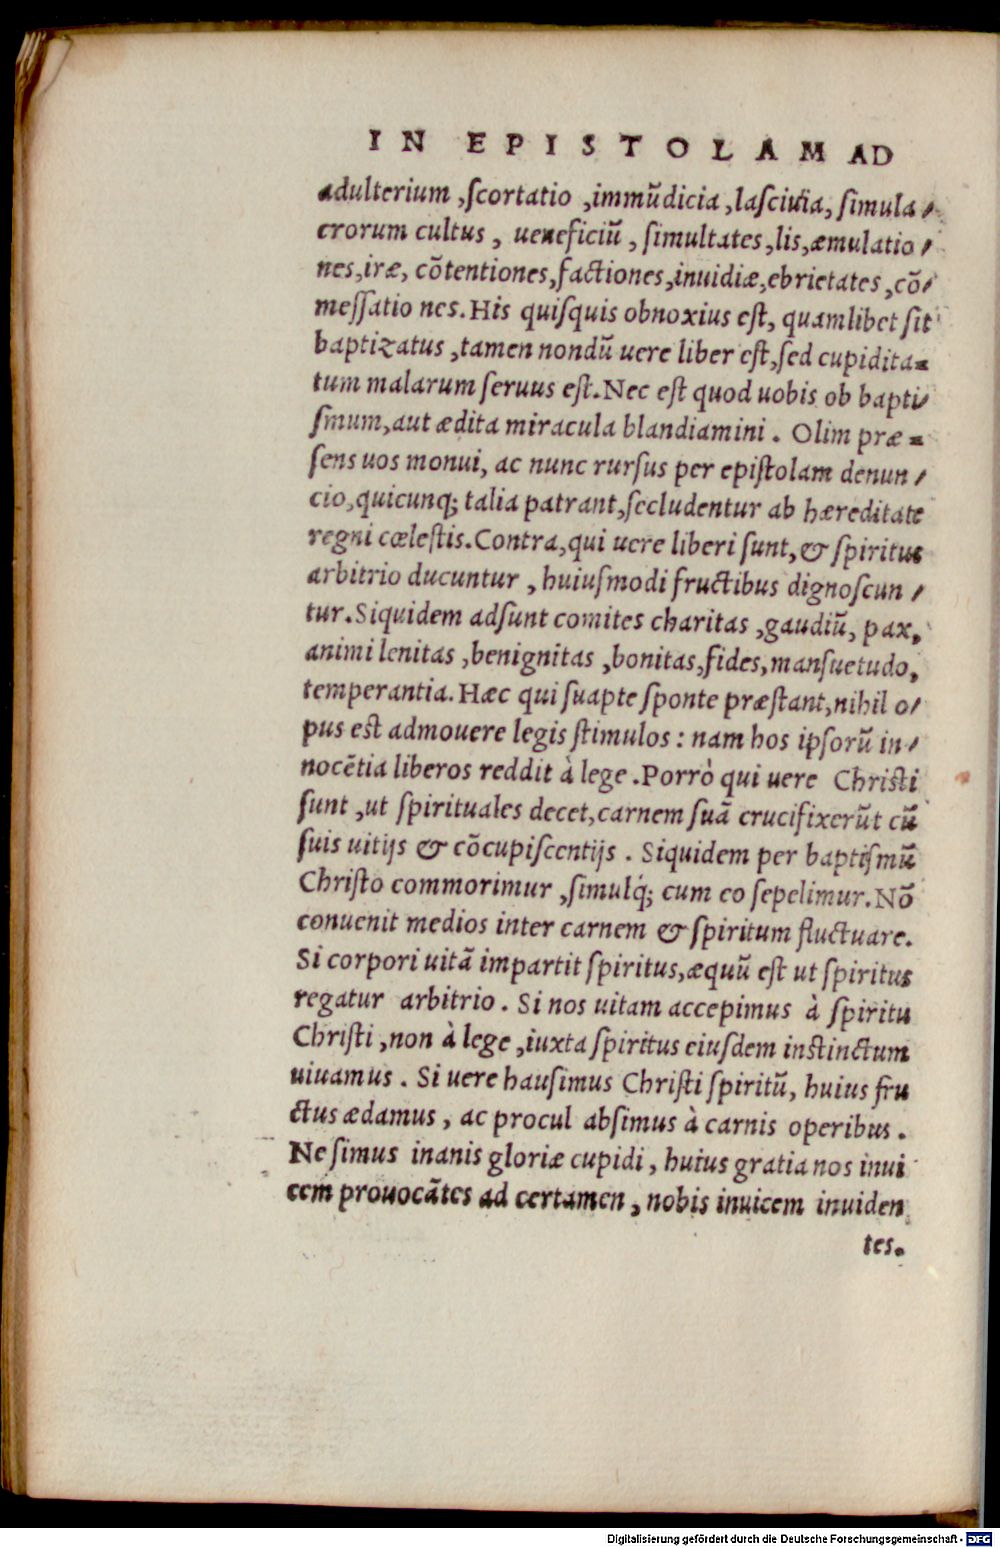 IN EPISTOLAM AD
adulterium, scortatio, immũdicia, lasciuia, simula/
crorum cultus, ueneficiũ, simultates, lis, æmulatio/
nes, iræ, cõtentiones, factiones, inuidiæ, ebrietates, cõ/
messatio nes. His quisquis obnoxius est, quamlibet sit
baptizatus, tamen nondũ uere liber est, sed cupidita=
tum malarum seruus est. Nec est quod uobis ob bapti/
smum, aut ædita miracula blandiamini. Olim præ=
sens uos monui, ac nunc rursus per epistolam denun/
cio, quicunq; talia patrant, secludentur ab hæreditate
regni cœlestis. Contra, qui uere liberi sunt, & spiritus
arbitrio ducuntur, huiusmodi fructibus dignoscun/
tur. Siquidem adsunt comites charitas, gaudiũ, pax,
animi lenitas, benignitas, bonitas, fides, mansuetudo,
temperantia. Hæc qui suapte sponte præstant, nihil o/
pus est admouere legis stimulos: nam hos ipsorũ in/
nocẽtia liberos reddit à lege. Porrò qui uere Christi
sunt, ut spirituales decet, carnem suã crucifixerũt cũ
suis uitijs & cõcupiscentijs. Siquidem per baptismũ
Christo commorimur, simulq́; cum eo sepelimur. Nõ
conuenit medios inter carnem & spiritum fluctuare.
Si corpori uitã impartit spiritus, æquũ est ut spiritus
regatur arbitrio. Si nos uitam accepimus à spiritu
Christi, non à lege, iuxta spiritus eiusdem instinctum
uiuamus. Si uere hausimus Christi spiritũ, huius fru
ctus ædamus, ac procul absimus à carnis operibus.
Ne simus inanis gloriæ cupidi, huius gratia nos inui
cem prouocãtes ad certamen, nobis inuicem inuiden
tes.
Digitalisierung gefördert durch die Deutsche Forschungsgemeinschaft - DFG